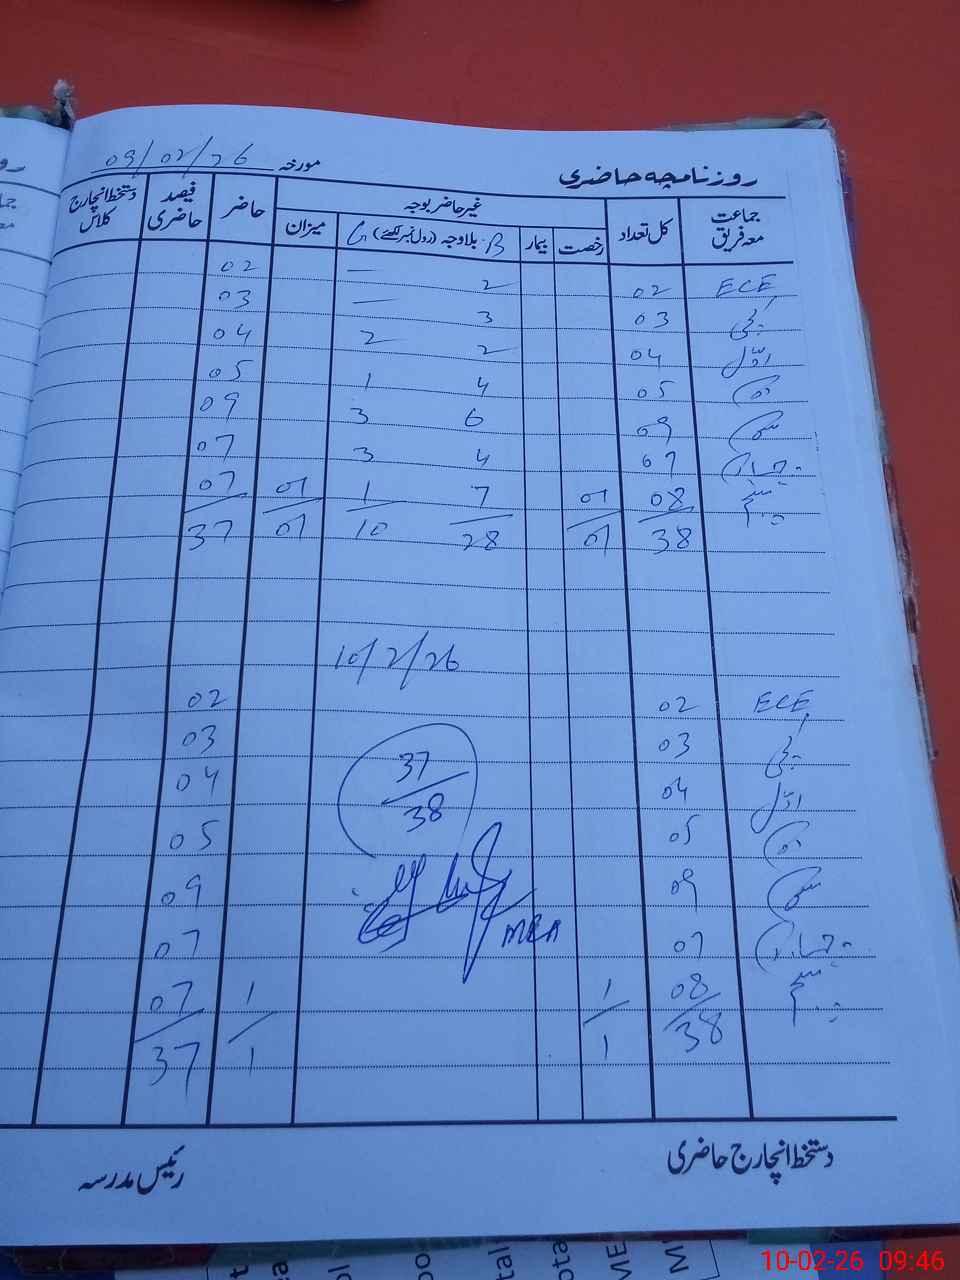 روزنامچہ حاضری مورخہ 09/02/26
جماعت معہ فریق کل تعداد غیر حاضر بوجہ حاضر فیصد حاضری دستخط انچارج کلاس
رخصت بیمار B بلاوجہ (رول نمبر لکھئے) G میزان
ECE 02 2 — 02
پکی 03 3 — 03
اوّل 04 2 2 04
دوم 05 4 1 05
سوم 09 6 3 09
چہارم 07 4 3 07
پنجم 08 01 7 1 01 07
38 01 28 10 01 37
10/2/26
ECE 02 02
پکی 03 03
اوّل 04 04
دوم 05 05
سوم 09 09
چہارم 07 07
پنجم 08 1 1 07
38 1 1 37
37
38
MEA
دستخط انچارج حاضری رئیس مدرسہ
10-02-26 09:46